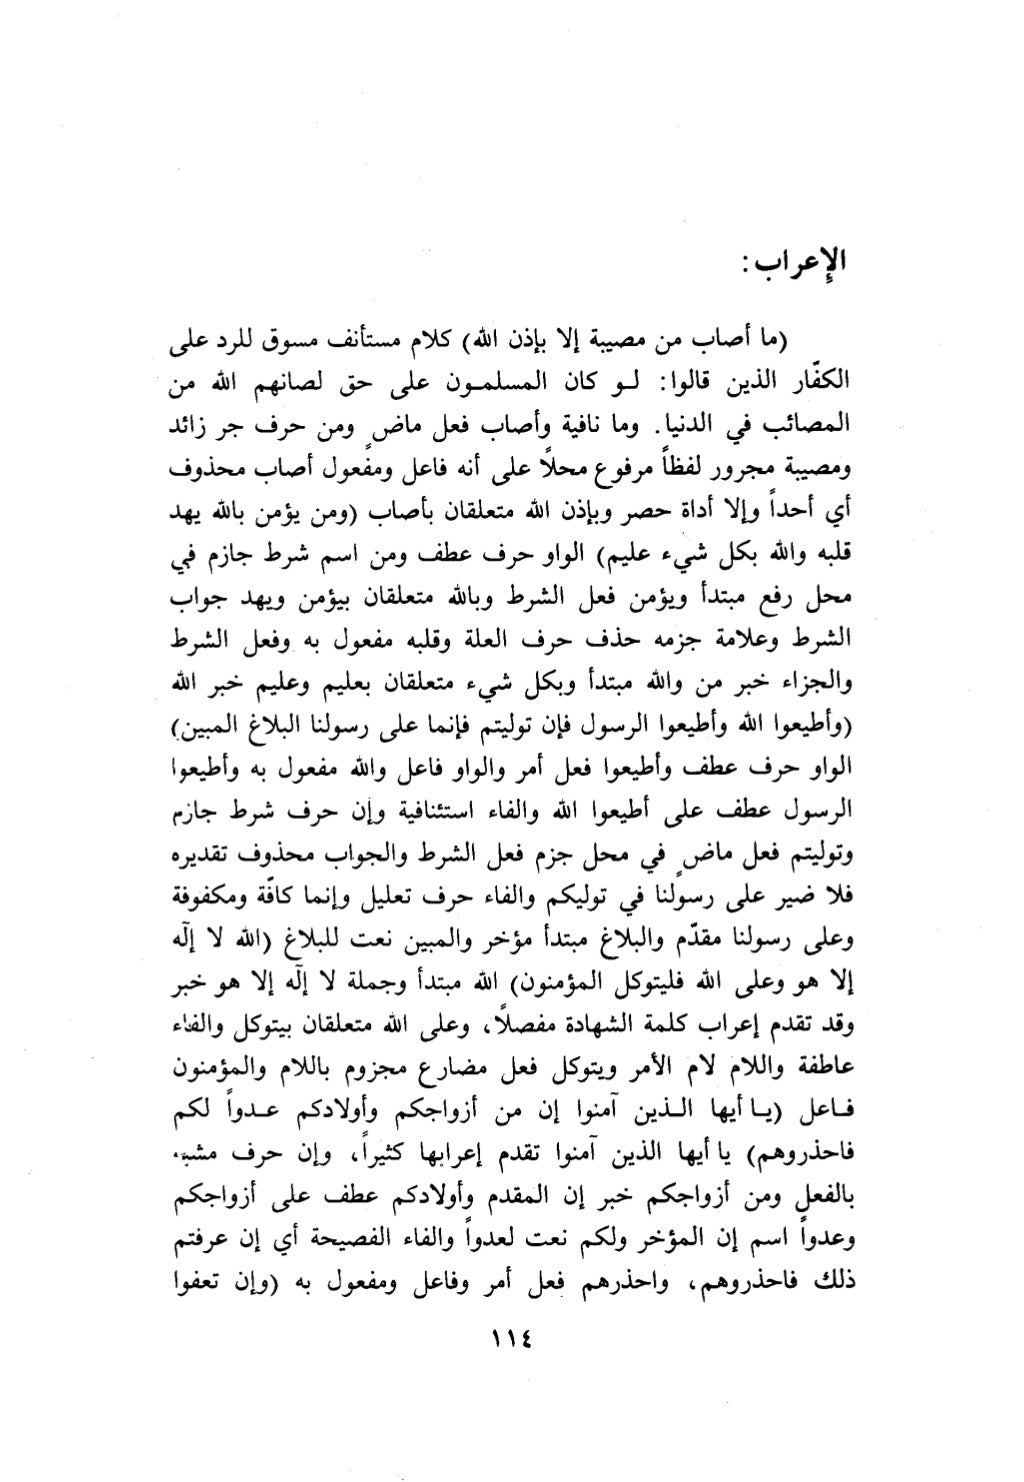 الإعراب :
(ما أصاب من مصيبة إلا بإذن الله) كلام مستأنف مسوق للرد على
الكفّار الذين قالوا : لـو كان المسلمـون على حق لصانهم الله من
المصائب في الدنيا . وما نافية وأصاب فعل ماضٍ ومن حرف جر زائد
ومصيبة مجرور لفظاً مرفوع محلاً على أنه فاعل ومفعول أصاب محذوف
أي أحداً وإلا أداة حصر وبإذن الله متعلقان بأصاب (ومن يؤمن بالله يهد
قلبه والله بكل شيء عليم) الواو حرف عطف ومن اسم شرط جازم في
محل رفع مبتدأ ويؤمن فعل الشرط وبالله متعلقان بيؤمن ويهد جواب
الشرط وعلامة جزمه حذف حرف العلة وقلبه مفعول به وفعل الشرط
والجزاء خبر من والله مبتدأ وبكل شيء متعلقان بعليم وعليم خبر الله
(وأطيعوا الله وأطيعوا الرسول فإن توليتم فإنما على رسولنا البلاغ المبين)
الواو حرف عطف وأطيعوا فعل أمر والواو فاعل والله مفعول به وأطيعوا
الرسول عطف على أطيعوا الله والفاء استئنافية وإن حرف شرط جازم
وتوليتم فعل ماضٍ في محل جزم فعل الشرط والجواب محذوف تقديره
فلا ضير على رسولنا في توليكم والفاء حرف تعليل وإنما كافّة ومكفوفة
وعلى رسولنا مقدّم والبلاغ مبتدأ مؤخر والمبين نعت للبلاغ (الله لا إلٓه
إلا هو وعلى الله فليتوكل المؤمنون) الله مبتدأ وجملة لا إلٓه إلا هو خبر
وقد تقدم إعراب كلمة الشهادة مفصلاً ، وعلى الله متعلقان بيتوكل والفاء
عاطفة واللام لام الأمر ويتوكل فعل مضارع مجزوم باللام والمؤمنون
فـاعل (يـا أيها الـذين آمنوا إن من أزواجكم وأولادكم عـدواً لكم
فاحذروهم) يا أيها الذين آمنوا تقدم إعرابها كثيراً ، وإن حرف مشبه
بالفعل ومن أزواجكم خبر إن المقدم وأولادكم عطف على أزواجكم
وعدواً اسم إن المؤخر ولكم نعت لعدواً والفاء الفصيحة أي إن عرفتم
ذلك فاحذروهم ، واحذرهم فعل أمر وفاعل ومفعول به (وإن تعفوا
١١٤